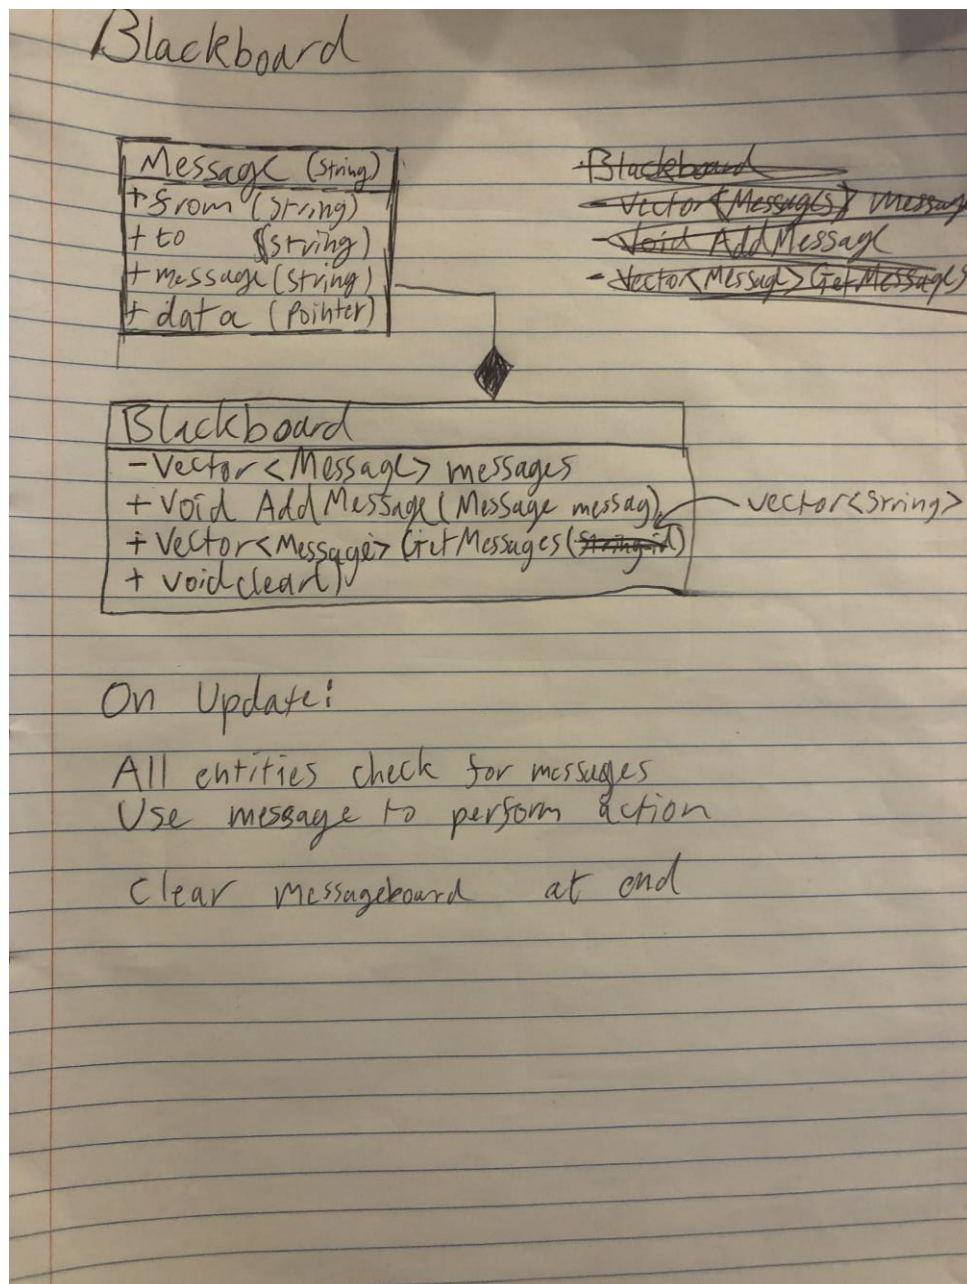 Blackboard
Message (String)
+ from (String)
+ to (String)
+ message (String)
+ data (Pointer)
Blackboard
- Vector<Message(s)> messag
- Void AddMessage
- Vector<Message> GetMessages
Blackboard
- Vector<Message> messages
+ Void AddMessage(Message messag)
vector<String>
+ Vector<Message> GetMessages(String id)
+ void clear()
On Update:
All entities check for messages
Use message to perform action
Clear messageboard at end